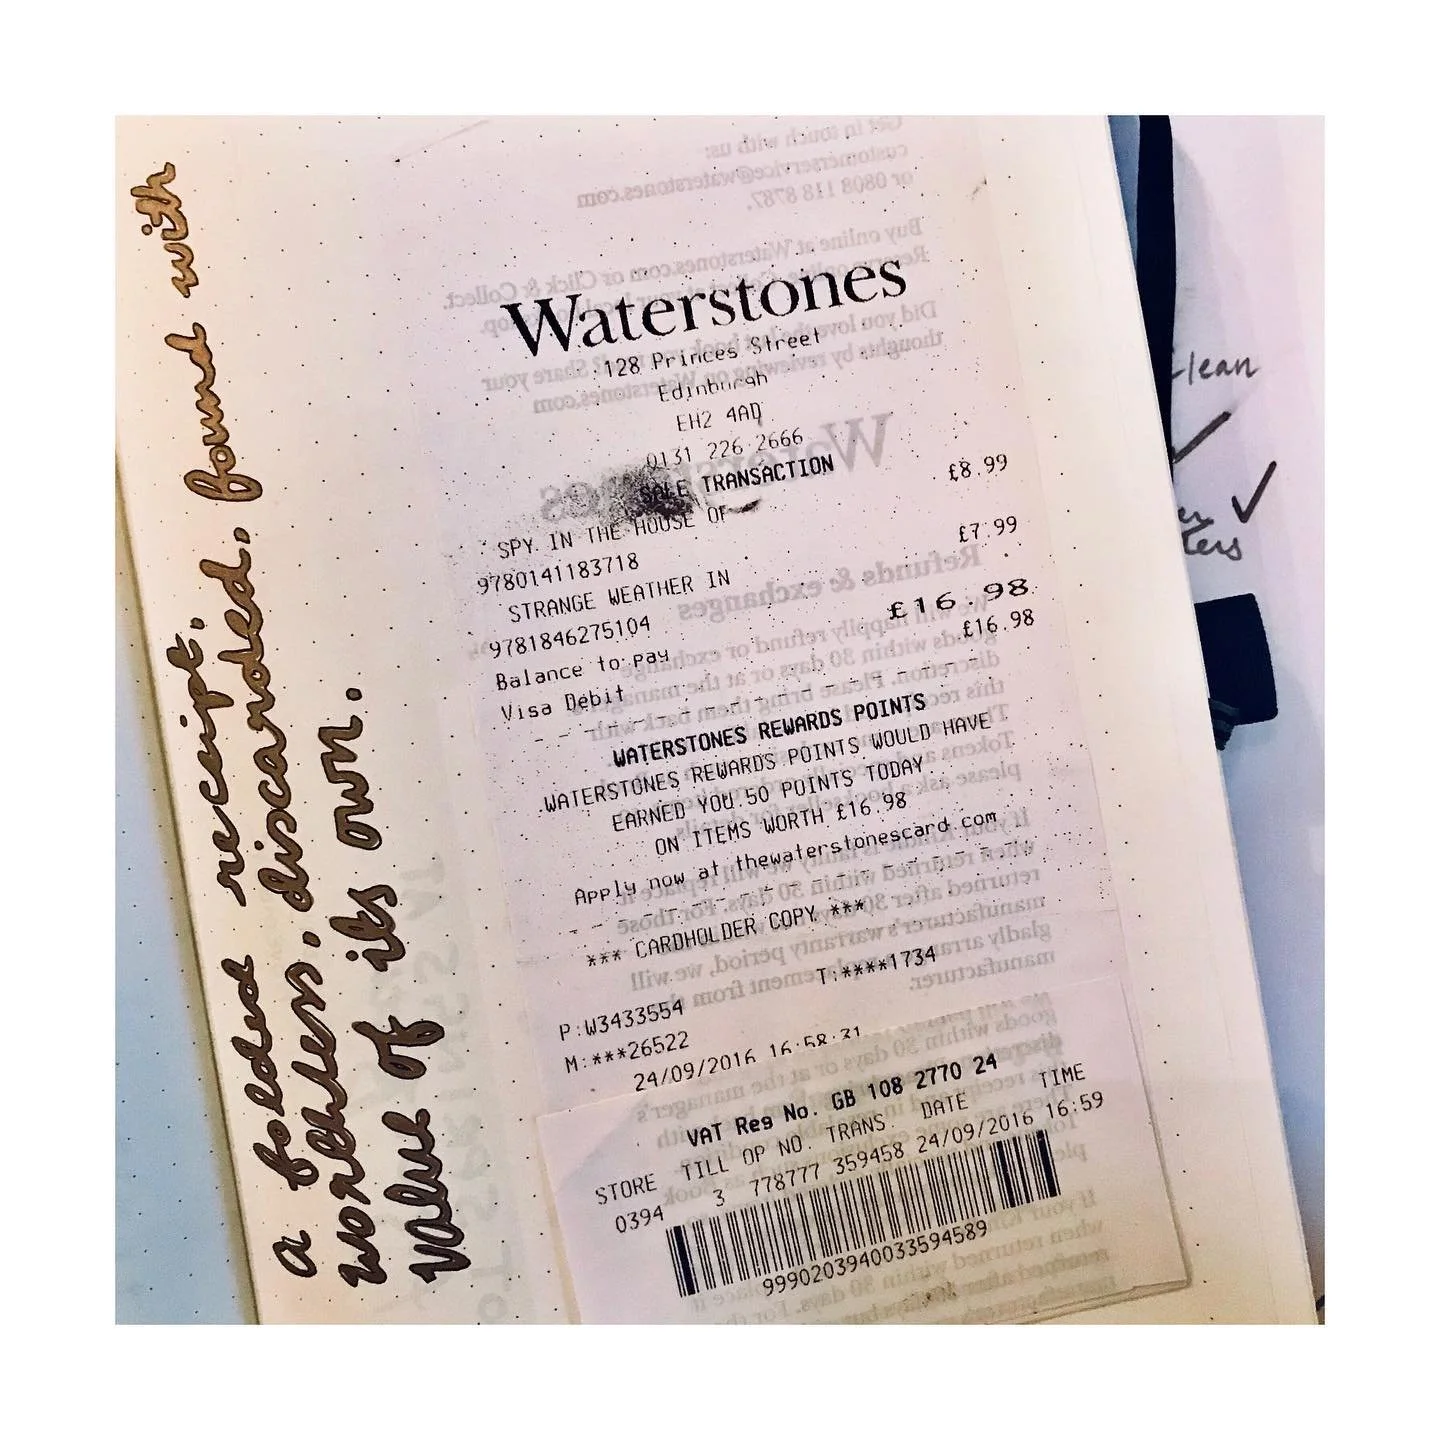 a folded receipt.
worthless. discarded. found with
value of its own.
Waterstones
128 Princes Street
Edinburgh
EH2 4AD
0131 226 2666
SALE TRANSACTION
SPY IN THE HOUSE OF £8.99
9780141183718
STRANGE WEATHER IN £7.99
9781846275104
Balance to pay £16.98
Visa Debit £16.98
WATERSTONES REWARDS POINTS
WATERSTONES REWARDS POINTS WOULD HAVE
EARNED YOU 50 POINTS TODAY
ON ITEMS WORTH £16.98
Apply now at thewaterstonescard.com
*** CARDHOLDER COPY ***
P:W3433554 T:****1734
M:***26522
24/09/2016 16:58:31
VAT Reg No. GB 108 2770 24
STORE TILL OP NO. TRANS. DATE TIME
0394 3 778777 359458 24/09/2016 16:59
9990203940033594589
Get in touch with us:
customerservice@waterstones.com
or 0808 118 8787.
Buy online at Waterstones.com or Click & Collect.
Did you love the last book you read? Share your
thoughts by reviewing on Waterstones.com
Waterstones
Refunds & exchanges
We will happily refund or exchange
goods within 30 days or at the manager's
discretion. Please bring them back with
clean